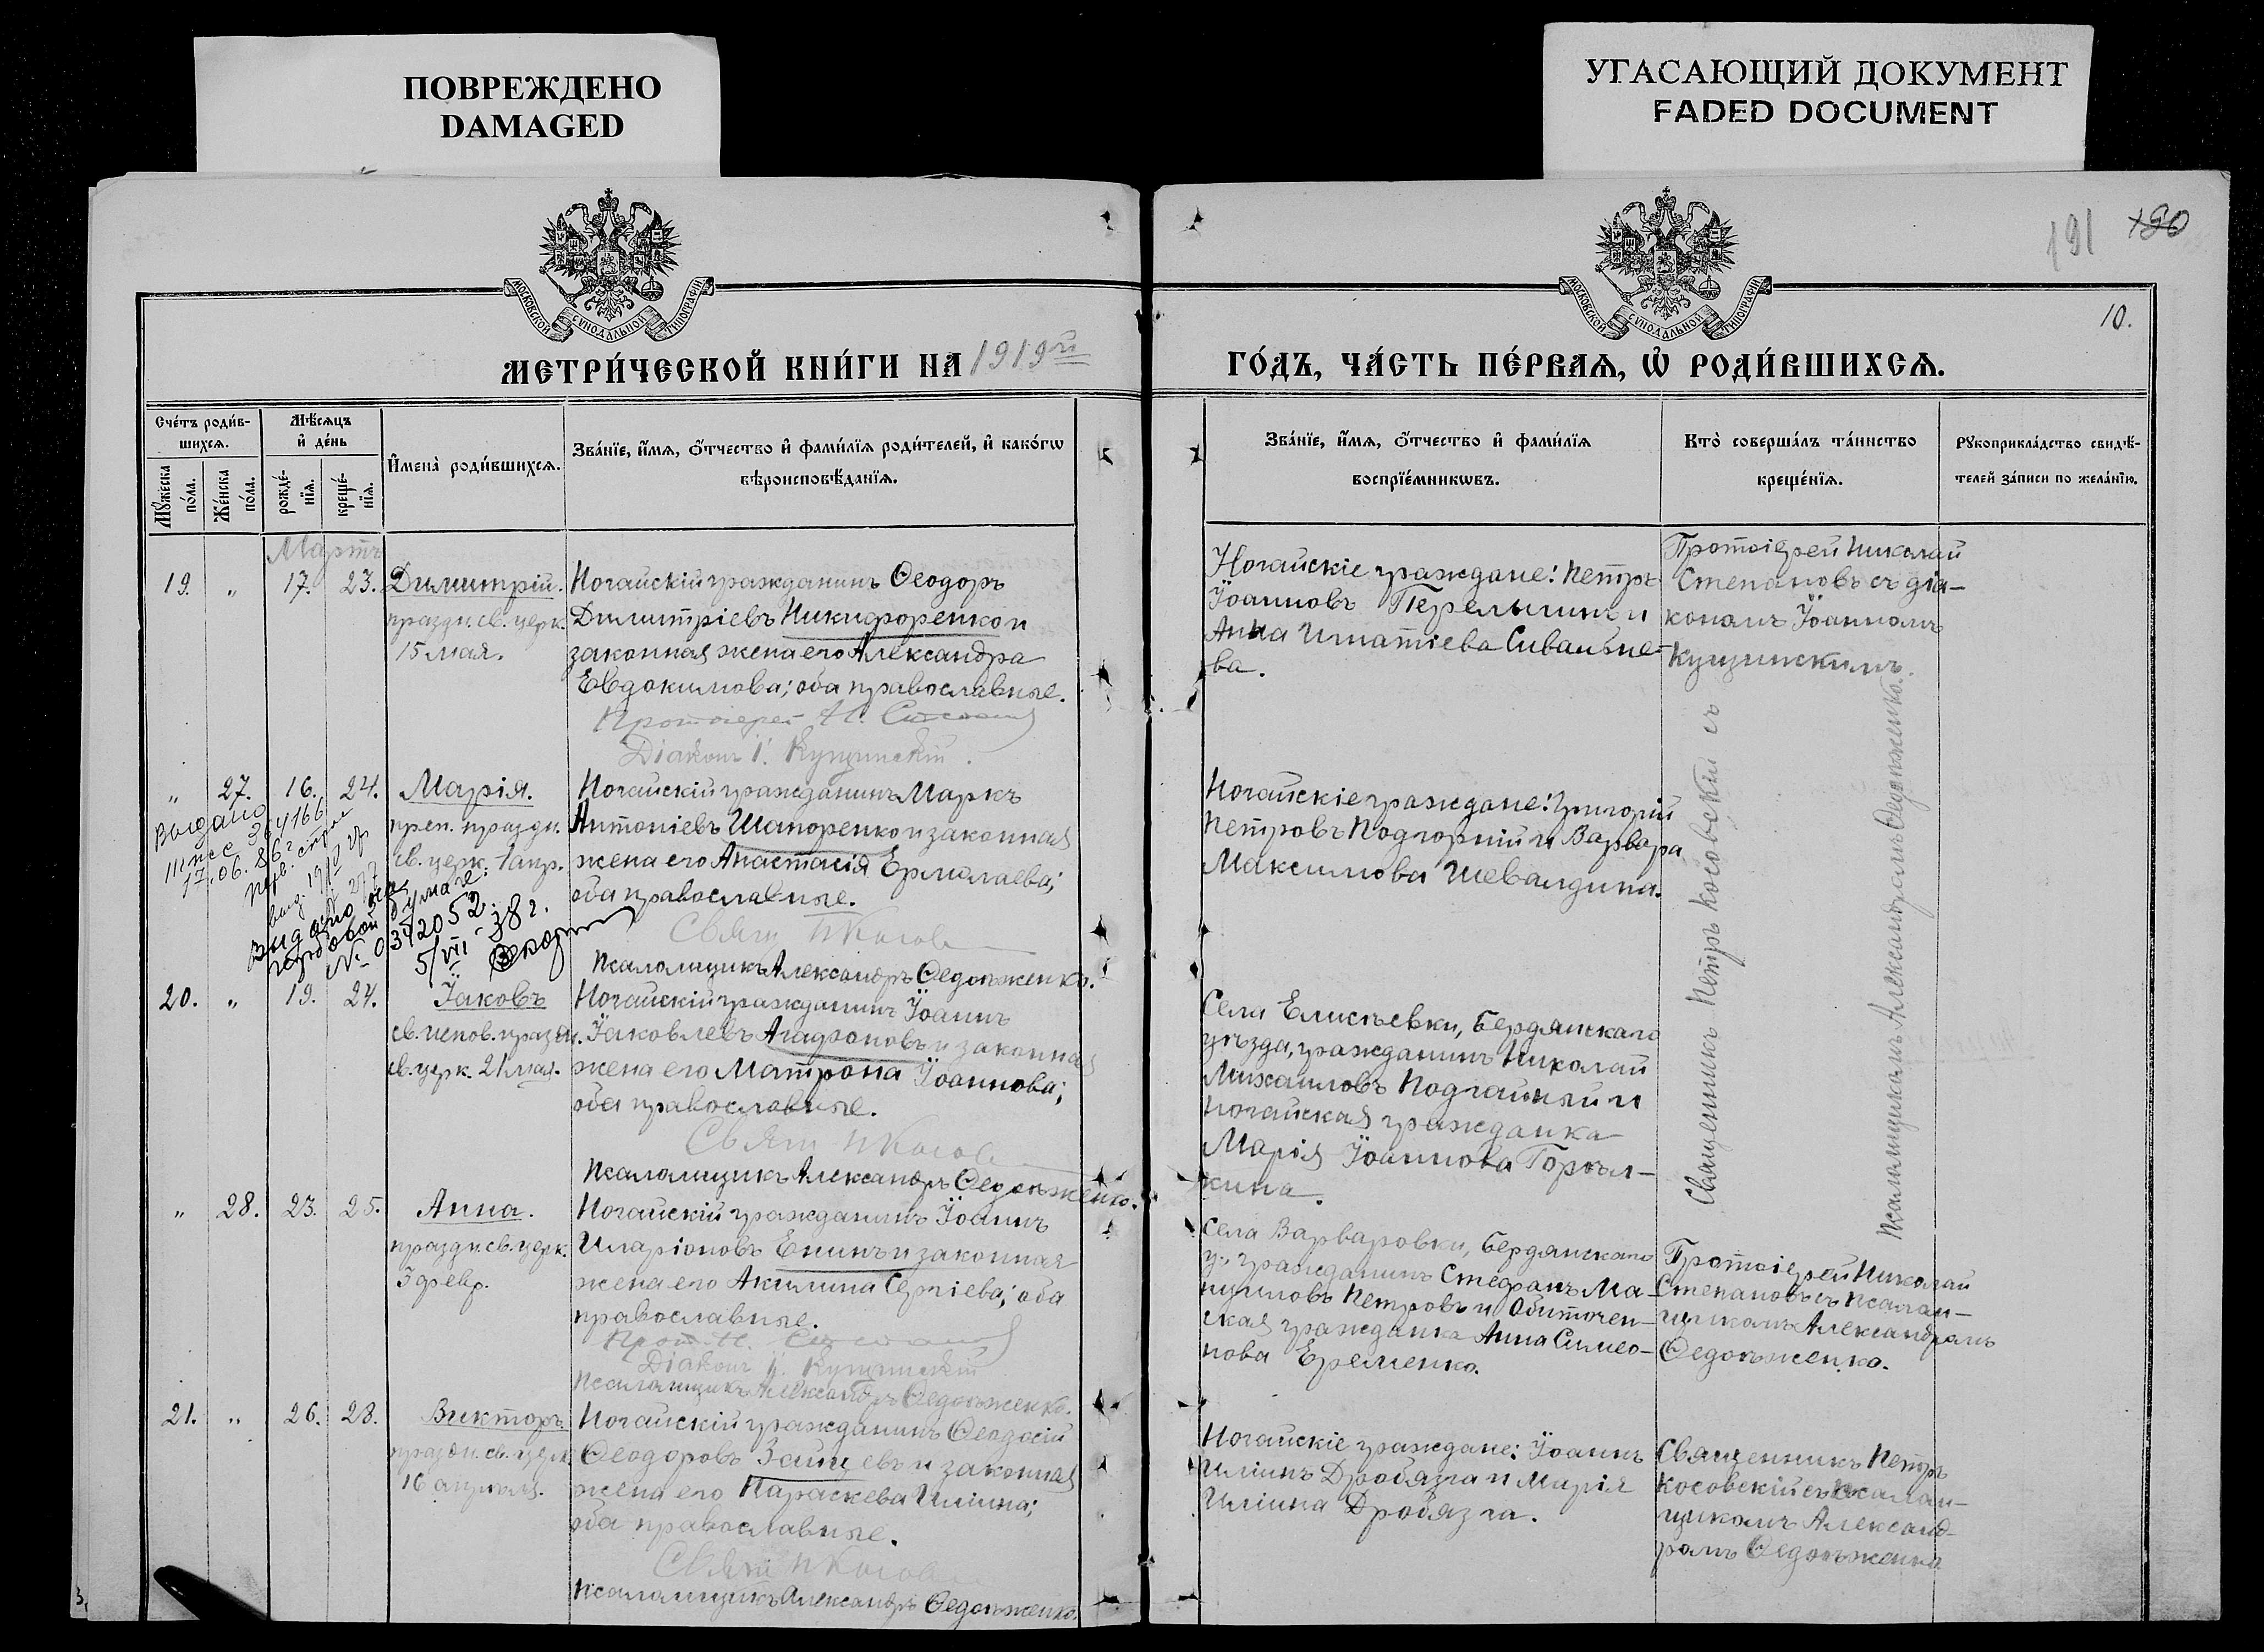 ПОВРЕЖДЕНО
DAMAGED
УГАСАЮЩИЙ ДОКУМЕНТ
FADED DOCUMENT
191 190
10.
МОСКОВСКОЙ СУНОДАЛЬНОЙ ТИПОГРАФІИ
МОСКОВСКОЙ СУНОДАЛЬНОЙ ТИПОГРАФІИ
МЕТРИ́ЧЕСКОЙ КНИ́ГИ НА 1919й
ГО́ДЪ, ЧА́СТЬ ПЕ́РВАЯ, Ѡ҆ РОДИ́ВШИХСЯ.
Сче́тъ роди́в-
шихся.
Мѣ́сяцъ
и҆ де́нь
Мꙋ́жеска по́ла.
Же́нска по́ла.
рожде́-нїя.
креще́-нїя.
И҆мена̀ роди́вшихся.
Зва́нїе, и҆́мя, ѻ҆́тчество и҆ фами́лїя роди́телей, и҆ како́гѡ
вѣроисповѣ́данїя.
Зва́нїе, и҆́мя, ѻ҆́тчество и҆ фами́лїя
воспрїе́мникѡвъ.
Кто̀ соверша́лъ та́инство
креще́нїя.
Рꙋкоприкла́дство свидѣ́-
телей за́писи по жела́нїю.
Мартъ
19. " 17. 23. Димитрій.
праздн. св. церк.
15 мая.
Ногайскій гражданинъ Ѳеодоръ
Димитріевъ Никифоренко и
законная жена его Александра
Евдокимова; оба православные.
Протоіерей Н. Степановъ
Діаконъ І. Кущинскій.
Ногайскіе граждане: Петръ
Іоанновъ Перелыгинъ и
Анна Игнатіева Сивальне-
ва.
Протоіерей Николай
Степановъ съ діа-
кономъ Іоанномъ
Кущинскимъ.
" 27. 16. 24. Марія.
преп. праздн.
св. церк. 1 апр.
Выдано
17.06.86г
выдано на
гербовой бумаге:
№ 0372052.
5/VII-38г.
Ногайскій гражданинъ Маркъ
Антоніевъ Шапоренко и законная
жена его Анастасія Ермолаева;
оба православные.
Свящ П Косов
Псаломщикъ Александръ Ѳедоженко.
Ногайскіе граждане: Григорій
Петровъ Подгорній и Варвара
Максимова Шевалдина.
Священникъ Петръ Косовскій съ
Псаломщикомъ Александромъ Ѳедоженко.
20. " 19. 24. Іаковъ
св. испов. праздн.
св. церк. 21 мая.
Ногайскій гражданинъ Іоаннъ
Іаковлевъ Агафоновъ и законная
жена его Матрона Іоаннова;
оба православные.
Свящ П Косов
Псаломщикъ Александръ Ѳедоженко.
Села Елисѣевки, Бердянскаго
уѣзда, гражданинъ Николай
Михаиловъ Подгайный и
ногайская гражданка
Марія Іоаннова Горѣл-
кина.
" 28. 23. 25. Анна.
праздн. св. церк.
3 февр.
Ногайскій гражданинъ Іоаннъ
Иларіоновъ Енинъ и законная
жена его Акилина Сергіева; оба
православные.
Прот. Н. Степановъ
Діаконъ І. Кущинскій
Псаломщикъ Александръ Ѳедоженко.
Села Варваровки, Бердянскаго
у., гражданинъ Стефанъ Ма-
нуиловъ Петровъ и Обиточен-
ская гражданка Анна Симео-
нова Еременко.
Протоіерей Николай
Степановъ съ псалом-
щикомъ Александромъ
Ѳедоженко.
21. " 26. 28. Викторъ.
праздн. св. церк.
16 апрѣля.
Ногайскій гражданинъ Ѳеодосій
Ѳеодоровъ Зайцевъ и законная
жена его Параскева Иліина;
оба православные.
Свящ П Косов
Псаломщикъ Александръ Ѳедоженко.
Ногайскіе граждане: Іоаннъ
Иліинъ Дробязга и Марія
Иліина Дробязга.
Священникъ Петръ
Косовскій съ псалом-
щикомъ Александ-
ромъ Ѳедоженко